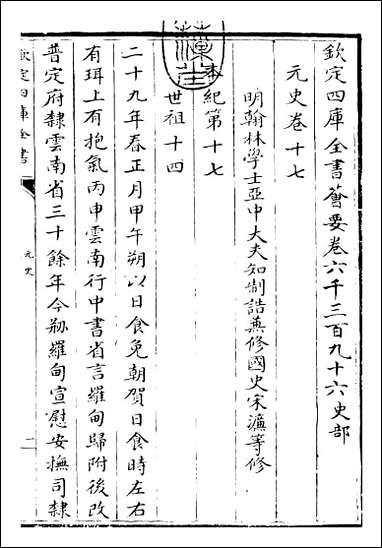 欽定四庫全書薈要卷六千三百九十六史部
元史卷十七
明翰林學士亞中大夫知制誥兼修國史宋濂等修
本紀第十七
世祖十四
二十九年春正月甲午朔以日食免朝賀日食時左右
有珥上有抱氣丙申雲南行中書省言羅甸歸附後改
普定府隸雲南省三十餘年今剏羅甸宣慰安撫司隸
欽定四庫全書
元史